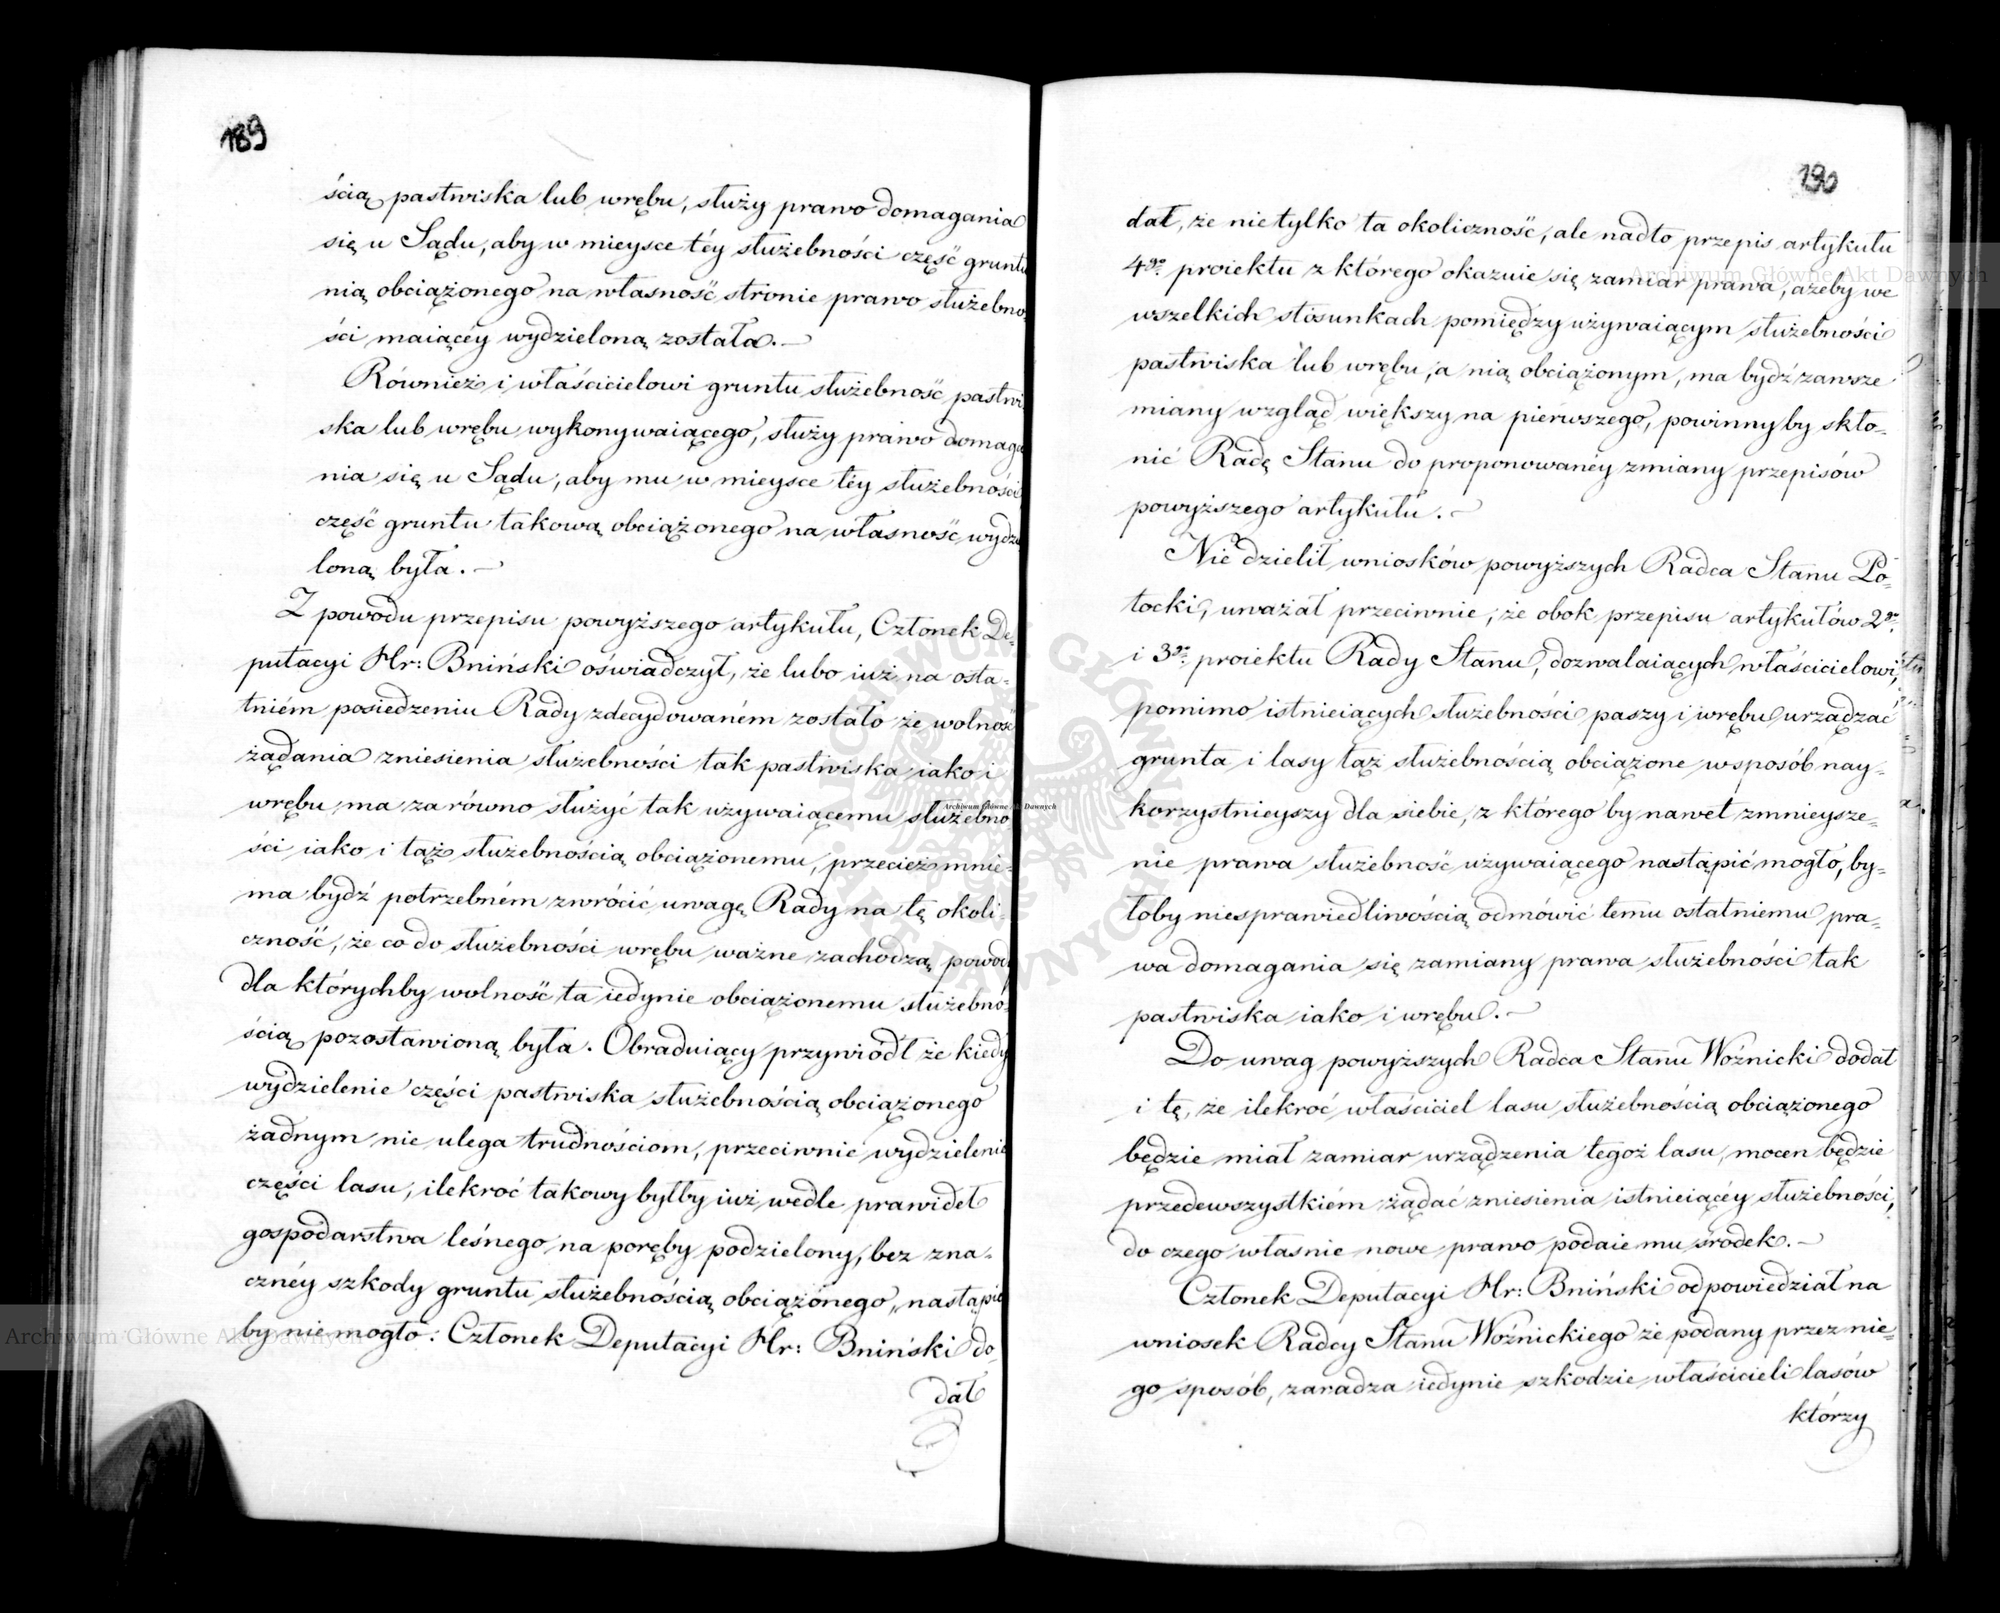 189
ścią pastwiska lub wrębu, służy prawo domagania
się u Sądu, aby w mieysce téy służebności część gruntu
nią obciążonego na własność stronie prawo służebno-
ści maiącéy wydzieloną została. —
Również i właścicielowi gruntu służebność pastwi
ska lub wrębu wykonywaiącego, służy prawo domaga
nia się u Sądu, aby mu w mieysce téy służebności
część gruntu takową obciążonego na własność wydzie
loną była. —
Z powodu przepisu powyższego artykułu, Członek De-
putacyi Hr: Bniński oświadczył, że lubo iuż na osta-
tniém posiedzeniu Rady zdecydowaném zostało że wolność
żądania zniesienia służebności tak pastwiska iako i
wrębu ma zarówno służyć tak używaiącemu służebno
ści iako i tąż służebnością obciążonemu, przecież mnie-
ma bydź potrzebném zwrócić uwagę Rady na tę okoli-
czność, że co do służebności wrębu ważne zachodzą powody
dla którychby wolność ta iedynie obciążonemu służebno-
ścią pozostawioną była. Obraduiący przywiódł że kiedy
wydzielenie części pastwiska służebnością obciążonego
żadnym nie ulega trudnościom, przeciwnie wydzielenie
części lasu, ilekroć takowy byłby iuż wedle prawideł
gospodarstwa leśnego na poręby podzielony, bez zna-
cznéy szkody gruntu służebnością obciążonego, nastąpić
by nie mogło. Członek Deputacyi Hr: Bniński do-
dał
190
dał, że nietylko ta okoliczność, ale nadto przepis artykułu
4go. proiektu z którego okazuie się zamiar prawa, ażeby we
wszelkich stosunkach pomiędzy używaiącym służebności
pastwiska lub wrębu, a nią obciążonym, ma bydź zawsze
miany wzgląd większy na pierwszego, powinny by skło-
nić Radę Stanu do proponowanéy zmiany przepisów
powyższego artykułu. —
Nie dzielił wniosków powyższych Radca Stanu Po-
tocki, uważał przeciwnie, że obok przepisu artykułów 2go.
i 3go. proiektu Rady Stanu, dozwalaiących właścicielowi,
pomimo istnieiących służebności paszy i wrębu urządzać
grunta i lasy tąż służebnością obciążone w sposób nay-
korzystnieyszy dla siebie, z którego by nawet zmnieysze-
nie prawa służebność używaiącego nastąpić mogło, by-
łoby niesprawiedliwością odmówić temu ostatniemu pra-
wa domagania się zamiany prawa służebności tak
pastwiska iako i wrębu. —
Do uwag powyższych Radca Stanu Woźnicki dodał
i tę, że ilekroć właściciel lasu służebnością obciążonego
będzie miał zamiar urządzenia tegoż lasu, mocen będzie
przedewszystkiém żądać zniesienia istnieiącéy służebności,
do czego własnie nowe prawo podaie mu środek. —
Członek Deputacyi Hr: Bniński odpowiedział na
wniosek Radcy Stanu Woźnickiego że podany przez nie-
go sposób, zaradza iedynie szkodzie właścicieli lasów
którzy
Archiwum Główne Akt Dawnych
Archiwum Główne Akt Dawnych
Archiwum Główne Akt Dawnych